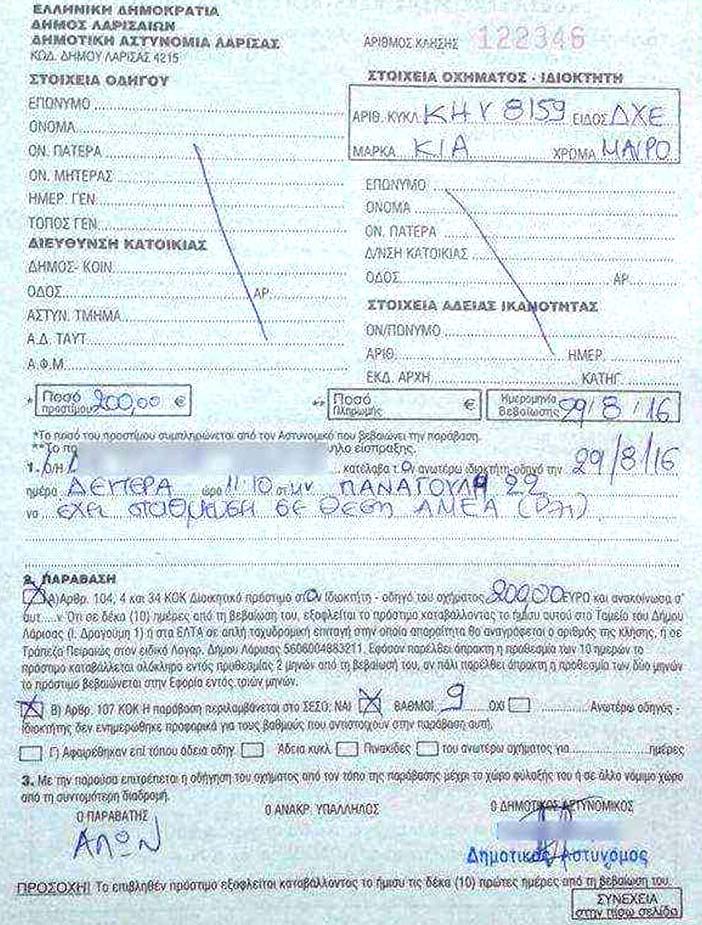 ΕΛΛΗΝΙΚΗ ΔΗΜΟΚΡΑΤΙΑ
ΔΗΜΟΣ ΛΑΡΙΣΑΙΩΝ
ΔΗΜΟΤΙΚΗ ΑΣΤΥΝΟΜΙΑ ΛΑΡΙΣΑΣ
ΚΩΔ. ΔΗΜΟΥ ΛΑΡΙΣΑΣ 4215
ΑΡΙΘΜΟΣ ΚΛΗΣΗΣ 122346
ΣΤΟΙΧΕΙΑ ΟΔΗΓΟΥ
ΕΠΩΝΥΜΟ
ΟΝΟΜΑ
ΟΝ. ΠΑΤΕΡΑ
ΟΝ. ΜΗΤΕΡΑΣ
ΗΜΕΡ. ΓΕΝ.
ΤΟΠΟΣ ΓΕΝ.
ΔΙΕΥΘΥΝΣΗ ΚΑΤΟΙΚΙΑΣ
ΔΗΜΟΣ- ΚΟΙΝ.
ΟΔΟΣ ΑΡ.
ΑΣΤΥΝ. ΤΜΗΜΑ
Α.Δ. ΤΑΥΤ.
Α.Φ.Μ.
ΣΤΟΙΧΕΙΑ ΟΧΗΜΑΤΟΣ - ΙΔΙΟΚΤΗΤΗ
ΑΡΙΘ. ΚΥΚΛ. ΚΗΥ 8159 ΕΙΔΟΣ ΔΧΕ
ΜΑΡΚΑ ΚΙΑ ΧΡΩΜΑ ΜΑΥΡΟ
ΕΠΩΝΥΜΟ
ΟΝΟΜΑ
ΟΝ. ΠΑΤΡΑ
Δ/ΝΣΗ ΚΑΤΟΙΚΙΑΣ
ΟΔΟΣ ΑΡ.
ΣΤΟΙΧΕΙΑ ΑΔΕΙΑΣ ΙΚΑΝΟΤΗΤΑΣ
ΟΝ/ΠΩΝΥΜΟ
ΑΡΙΘ. ΗΜΕΡ.
ΕΚΔ. ΑΡΧΗ ΚΑΤΗΓ.
* Ποσό προστίμου 200,00 €
** Ποσό Πληρωμής €
Ημερομηνία Βεβαίωσης 29/8/16
*Το ποσό του προστίμου συμπληρώνεται από τον Αστυνομικό που βεβαιώνει την παράβαση.
**Το πο ηλο είσπραξης.
1. Ο/Η κατέλαβα τον ανωτέρω ιδιοκτήτη-οδηγό την 29/8/16
ημέρα ΔΕΥΤΕΡΑ ώρα 11:10 στην ΠΑΝΑΓΟΥΛΗ 22
να έχει σταθμευση σε θεση ΑΜΕΑ
2. ΠΑΡΑΒΑΣΗ
Α) Αρθρ. 104, 4 και 34 ΚΟΚ Διοικητικό πρόστιμο στον Ιδιοκτήτη - οδηγό του οχήματος 200,00 ΕΥΡΩ και ανακοίνωσα σ'
αυτ....ν Ότι σε δέκα (10) ημέρες από τη βεβαίωση του, εξοφλείται το πρόστιμο καταβάλλοντας το ήμισυ αυτού στο Ταμείο του Δήμου
Λάρισας (Ι. Δραγούμη 1) ή στα ΕΛΤΑ σε απλή ταχυδρομική επιταγή στην οποία απαραίτητα θα αναγράφεται ο αριθμός της Κλήσης, ή σε
Τράπεζα Πειραιώς στον ειδικό Λογαρ. Δήμου Λάρισας 5606004883211. Εφόσον παρέλθει άπρακτη η προθεσμία των 10 ημερών το
πρόστιμο καταβάλλεται ολόκληρο εντός προθεσμίας 2 μηνών από τη βεβαίωσή του, αν πάλι παρέλθει άπρακτη η προθεσμία των δύο μηνών
το πρόστιμο βεβαιώνεται στην Εφορία εντός τριών μηνών.
Β) Αρθρ. 107 ΚΟΚ Η παράβαση περιλαμβάνεται στο ΣΕΣΟ; ΝΑΙ ΒΑΘΜΟΙ 9 ΟΧΙ Ανωτέρω οδηγός -
ιδιοκτήτης δεν ενημερώθηκε προφορικά για τους βαθμούς που αντιστοιχούν στην παράβαση αυτή.
Γ) Αφαιρέθηκαν επί τόπου άδεια οδηγ. Άδεια κυκλ. Πινακίδες του ανωτέρω οχήματος για ημέρες
3. Με την παρούσα επιτρέπεται η οδήγηση του οχήματος από τον τόπο της παράβασης μέχρι το χώρο φύλαξής του ή σε άλλο νόμιμο χώρο
από τη συντομότερη διαδρομή.
Ο ΠΑΡΑΒΑΤΗΣ Ο ΑΝΑΚΡ. ΥΠΑΛΛΗΛΟΣ Ο ΔΗΜΟΤΙΚΟΣ ΑΣΤΥΝΟΜΙΚΟΣ
ΑΠΩΝ
Δημοτικός Αστυνόμος
ΠΡΟΣΟΧΗ! Το επιβληθέν πρόστιμο εξοφλείται καταβάλλοντας το ήμισυ τις δέκα (10) πρώτες ημέρες από τη βεβαίωση του.
ΣΥΝΕΧΕΙΑ
στην πίσω σελίδα